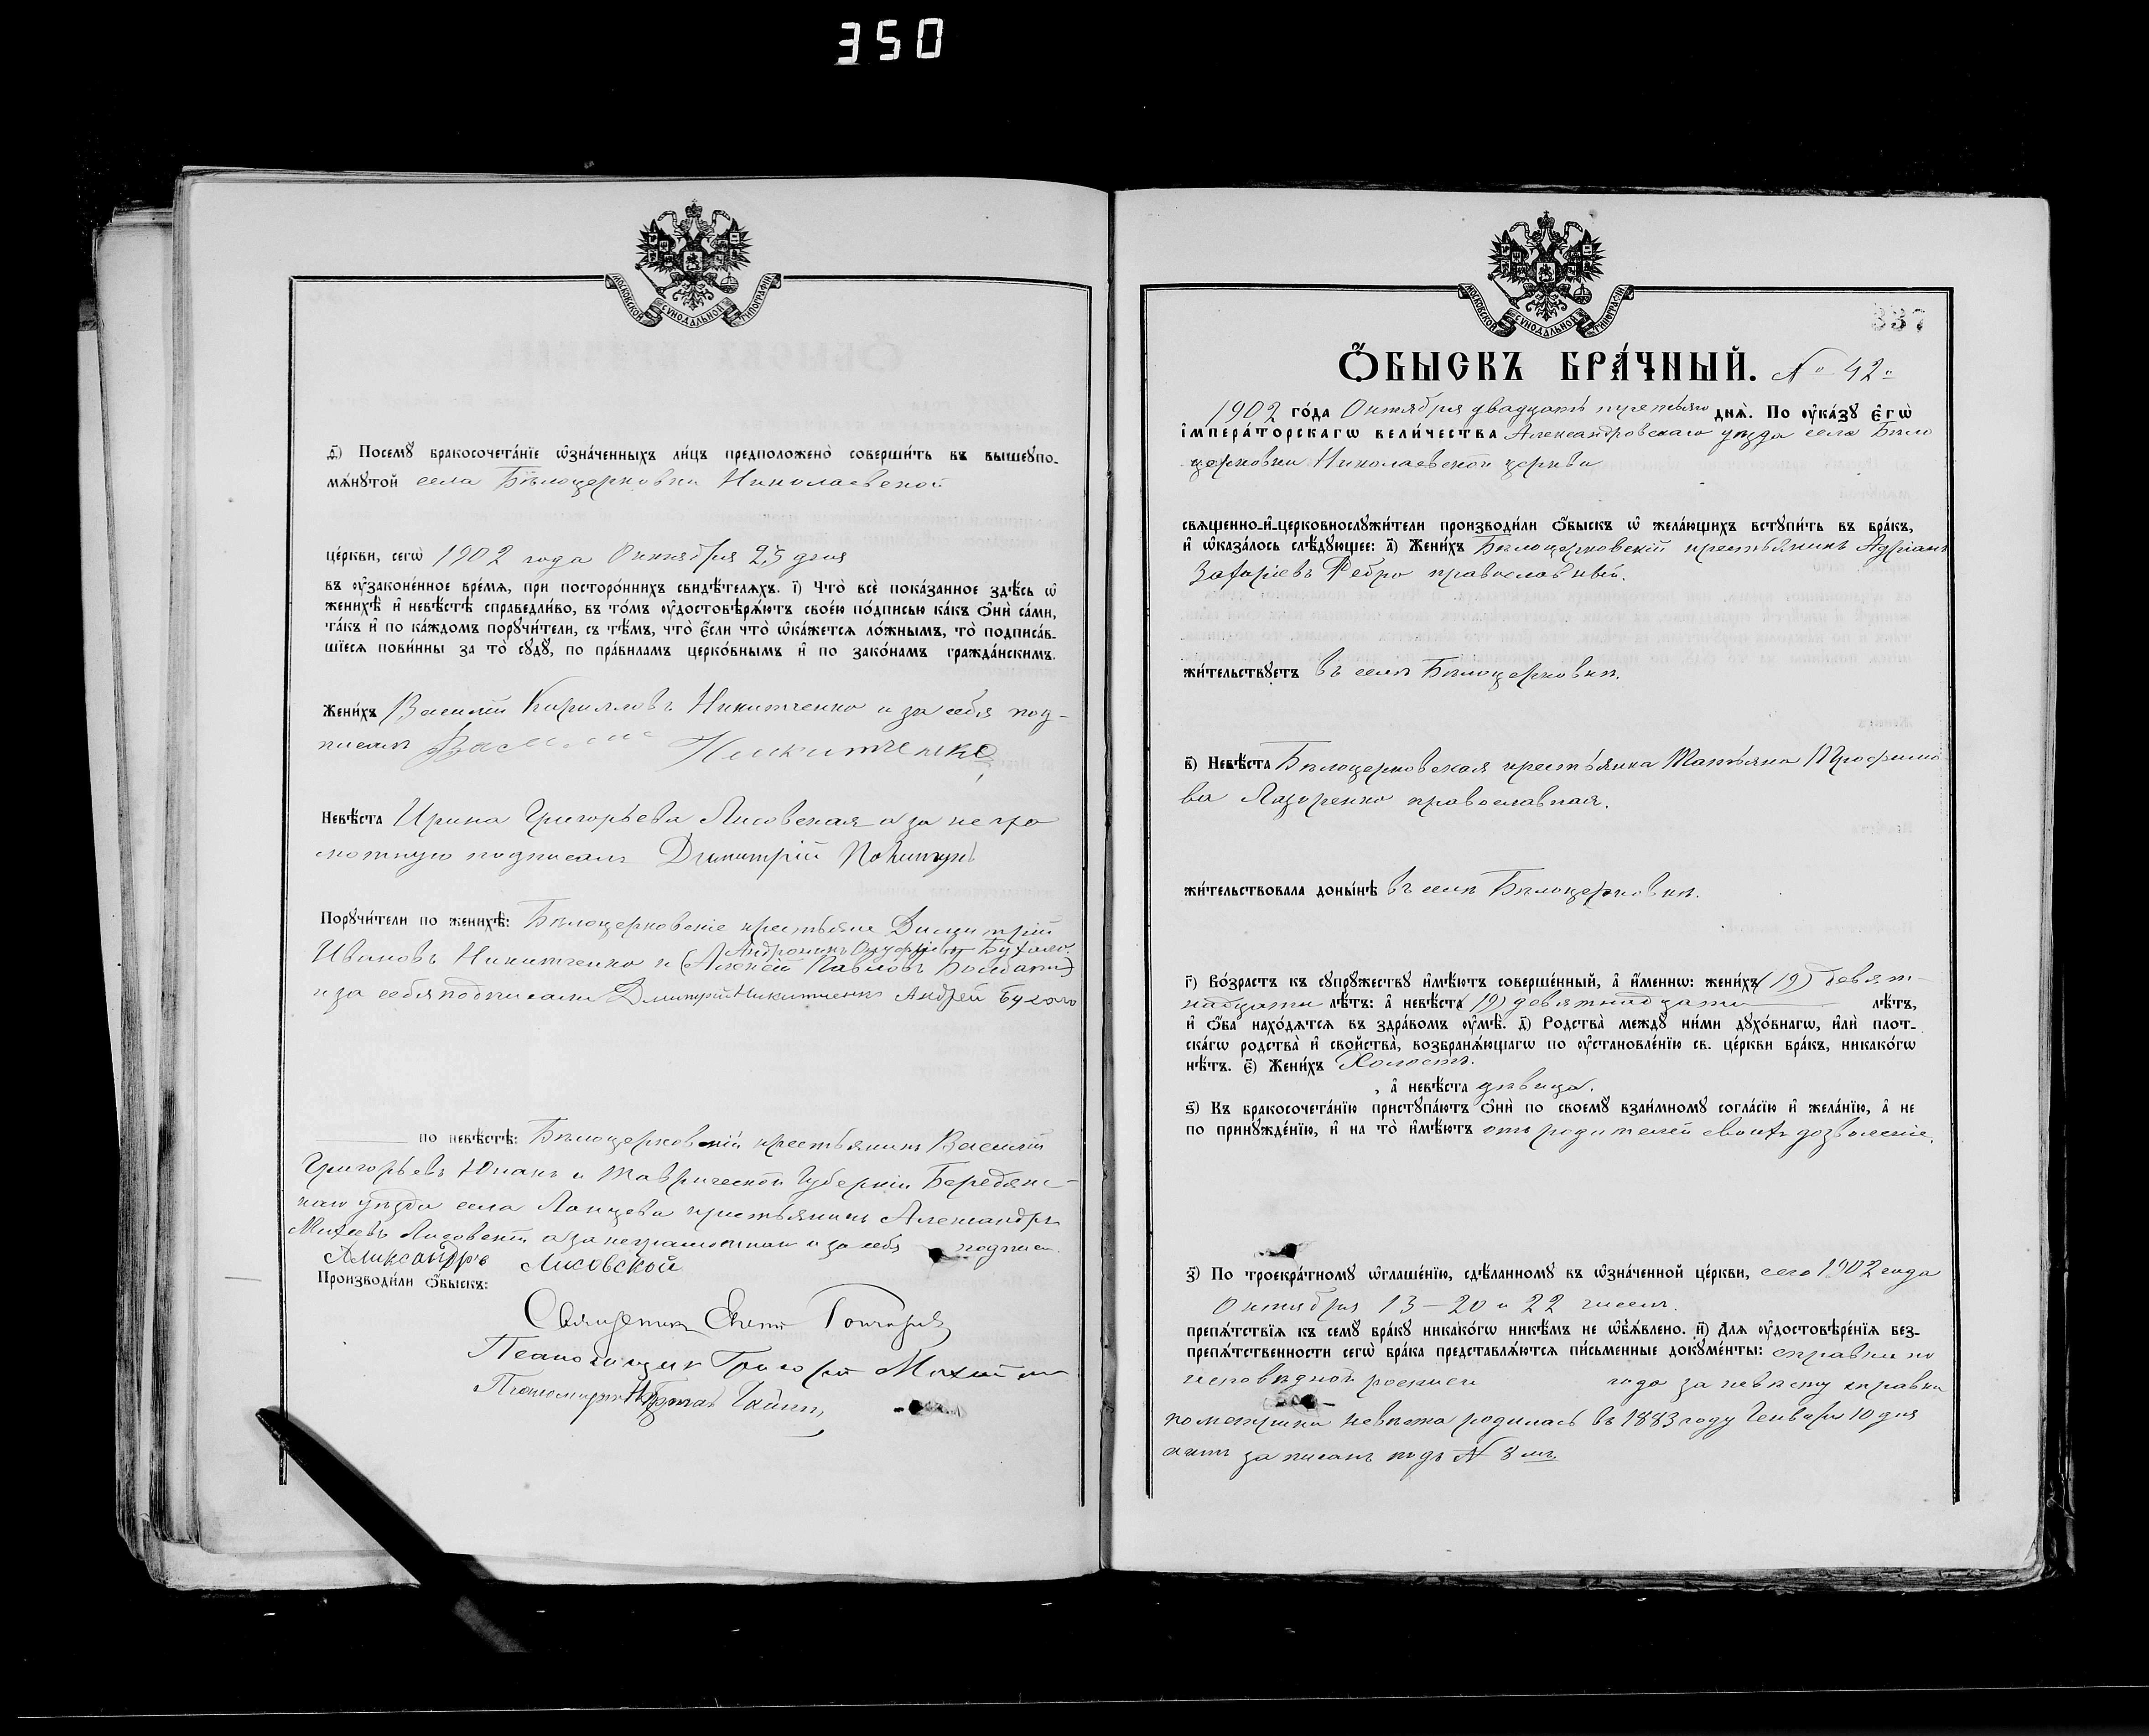 350
МОСКОВСКОЙ СУНОДАЛЬНОЙ ТИПОГРАФІИ
Ѳ҃) Посемꙋ̀ бракосочета́нїе ѡ҆зна́ченныхъ ли́цъ предположено̀ соверши́ть въ вышеꙋпо-
мѧ́нꙋтой села Бѣлоцерковки Николаевской
це́ркви, сегѡ̀ 1902 года Октября 23 дня
въ ᲂу҆законе́нное вре́мѧ, при посторо́ннихъ свидѣ́телѧхъ. І҃) Что̀ всѐ пока́занное здѣ́сь ѡ҆
женихѣ̀ и҆ невѣ́стѣ справедли́во, въ то́мъ ᲂу҆достовѣрѧ́ютъ свое́ю по́дписью ка́къ ѻ҆нѝ са́ми,
та́къ и҆ по ка́ждомъ порꙋчи́тели, съ тѣ́мъ, что̀ є҆́сли что̀ ѡ҆ка́жетсѧ ло́жнымъ, то̀ подписа́в-
шїесѧ пови́нны за то̀ сꙋдꙋ̀, по пра́виламъ церко́внымъ и҆ по зако́намъ гражда́нскимъ.
Жени́хъ Василій Кирилловъ Никитченко и за себя под-
писалъ Василій Никитченко
Невѣ́ста Ирина Григорьева Лисовская а за негра
мотную подписалъ Димитрій
Порꙋчи́тели по женихѣ̀: Бѣлоцерковскіе крестьяне Димитрій
Андроникъ Онуфріевъ Бухало
Ивановъ Никитченко и (Алексѣй Павловъ)
и за себя подписали Дмитрій Никитченко Андрей Бухало
по невѣ́стѣ: Бѣлоцерковскій крестьянинъ Василій
Григорьевъ Юнакъ и Таврической Губерніи Бердянс-
каго уѣзда села крестьянинъ Александръ
Михеевъ Лисовскій а за неграмотнаго и за себя подписа.
Александръ Лисовской
Производи́ли ѻ҆́быскъ:
Священникъ Гончаровъ
Псаломщикъ Григорій
МОСКОВСКОЙ СУНОДАЛЬНОЙ ТИПОГРАФІИ
337
Ѻ҆́БЫСКЪ БРА́ЧНЫЙ. № 42й
1902 го́да Октября двадцать третьяго днѧ̀. По ᲂу҆ка́зꙋ є҆гѡ̀
і҆мпера́торскагѡ вели́чества Александровскаго уѣзда села Бѣло
церковки Николаевской церкви
свѧщенно-и҆-церковнослꙋжи́тели производи́ли ѻ҆́быскъ ѡ҆ жела́ющихъ встꙋпи́ть въ бра́къ,
и҆ ѡ҆каза́лось слѣ́дꙋющее: а҃) Жени́хъ Бѣлоцерковскій крестьянинъ Адріанъ
Захаріевъ Ребро православный.
жи́тельствꙋетъ въ селѣ Бѣлоцерковкѣ.
в҃) Невѣ́ста Бѣлоцерковская крестьянка Татьяна Трофимо
ва Лазоренко православная.
жи́тельствовала доны́нѣ въ селѣ Бѣлоцерковкѣ.
г҃) Во́зрастъ къ сꙋпрꙋ́жествꙋ и҆мѣ́ютъ соверше́нный, а҆ и҆́меннѡ: жени́хъ (19) девят-
надцати лѣ́тъ: а҆ невѣ́ста (19) девятнадцати лѣ́тъ,
и҆ ѻ҆́ба нахо́дѧтсѧ въ здра́вомъ ᲂу҆мѣ̀. д҃) Родства̀ междꙋ̀ ни́ми дꙋхо́внагѡ, и҆лѝ плот-
ска́гѡ родства̀ и҆ свойства̀, возбранѧ́ющагѡ по ᲂу҆становле́нїю св. це́ркви бра́къ, никако́гѡ
нѣ́тъ. є҃) Жени́хъ Холостъ.
, а҆ невѣ́ста дѣвица.
ѕ҃) Къ бракосочета́нїю пристꙋпа́ютъ ѻ҆нѝ по своемꙋ̀ взаи́мномꙋ согла́сїю и҆ жела́нїю, а҆ не
по принꙋжде́нїю, и҆ на то̀ и҆мѣ́ютъ отъ родителей своихъ дозволеніе.
з҃) По троекра́тномꙋ ѡ҆глаше́нїю, сдѣ́ланномꙋ въ ѡ҆зна́ченной це́ркви, сего 1902 года
Октября 13 – 20 и 22 чиселъ.
препѧ́тствїѧ къ семꙋ̀ бра́кꙋ никако́гѡ никѣ́мъ не ѡ҆б̾ѧ́влено. и҃) Длѧ ᲂу҆достовѣре́нїѧ без-
препѧ́тственности сегѡ̀ бра́ка представлѧ́ютсѧ пи́сьменные докꙋме́нты: справки по
исповѣдной росписи года за невѣсту справки
по метрики невѣста родилась въ 1883 году Генваря 10 дня
актъ записанъ подъ № 8 мъ